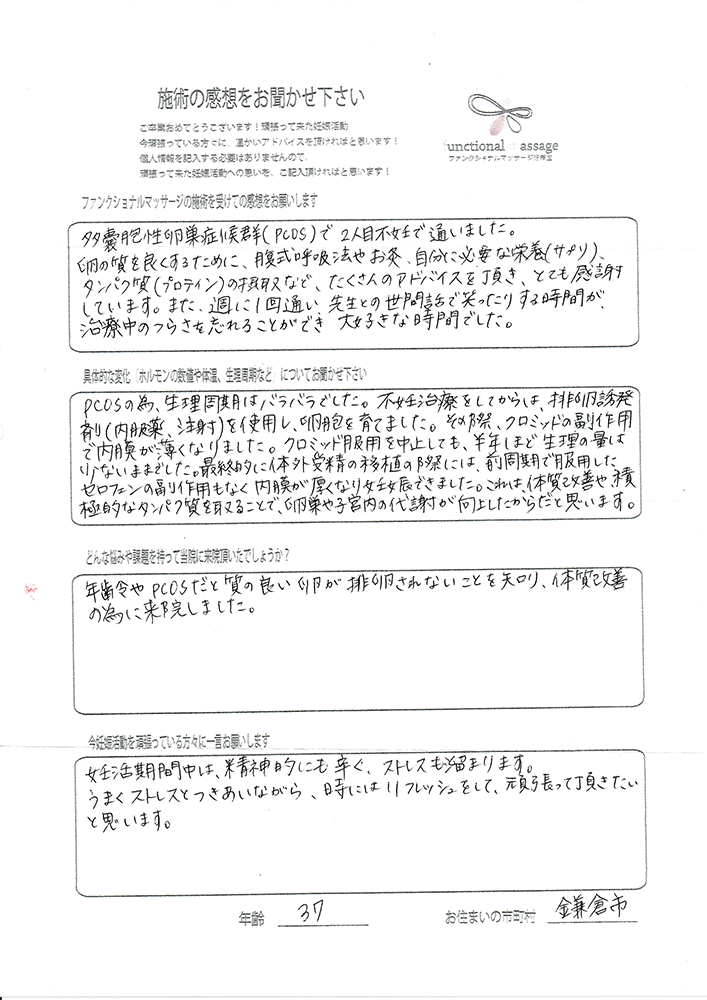 施術の感想をお聞かせ下さい
ご卒業おめでとうございます！頑張って来た妊娠活動
今頑張っている方々に、温かいアドバイスを頂ければと思います！
個人情報を記入する必要はありませんので、
頑張って来た妊娠活動への思いを、ご記入頂ければと思います！
functional massage
ファンクショナルマッサージ治療室
ファンクショナルマッサージの施術を受けての感想をお願いします
多嚢胞性卵巣症候群(PCOS)で2人目不妊で通いました。
卵の質を良くするために、腹式呼吸法やお灸、自分に必要な栄養(サプリ)、
タンパク質(プロテイン)の摂取など、たくさんのアドバイスを頂き、とても感謝
しています。また、週に1回通い、先生との世間話で笑ったりする時間が、
治療中のつらさを忘れることができ 大好きな時間でした。
具体的な変化「ホルモンの数値や体温、生理周期など」についてお聞かせ下さい
PCOSの為、生理周期はバラバラでした。不妊治療をしてからは、排卵誘発
剤(内服薬、注射)を使用し、卵胞を育てました。その際、クロミッドの副作用
で内膜が薄くなりました。クロミッド服用を中止しても、半年ほど生理の量は
少ないままでした。最終的に体外受精の移植の際には、前周期で服用した
セロフェンの副作用もなく内膜が厚くなり妊娠できました。これは、体質改善や積
極的なタンパク質を取ることで、卵巣や子宮内の代謝が向上したからだと思います。
どんな悩みや課題を持って当院に来院頂いたでしょうか？
年齢やPCOSだと質の良い卵が排卵されないことを知り、体質改善
の為に来院しました。
今妊娠活動を頑張っている方々に一言お願いします
妊活期間中は、精神的にも辛く、ストレスも溜まります。
うまくストレスとつきあいながら、時にはリフレッシュをして、頑張って頂きたい
と思います。
年齢 37 お住まいの市町村 鎌倉市